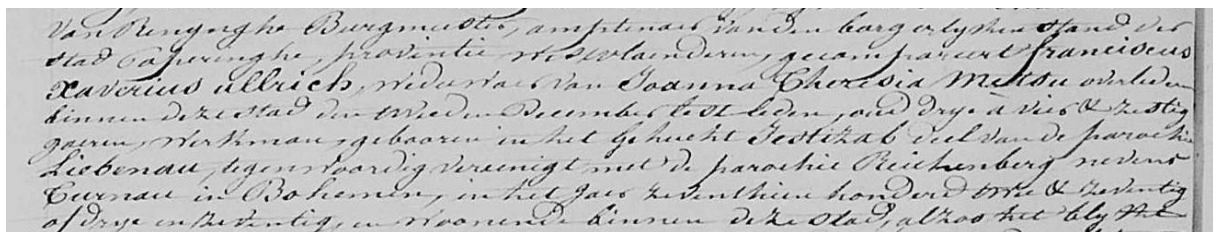 van Renynghe Burgmeester, amptenaer van den borgerlyken stand der
stad Poperinghe, provintie Westvlaenderen, gecompareert franciscus
xaverius ullrich, wedewaer van Joanna Theresia Mettou overleden
binnen deze stad den tweeden December lest leden, oud drye à vier & zestig
jaeren, werkman, gebooren in het gehucht deel van de parochie
Liebenau, tegenwoordig vereenigt met de parochie Reichenberg nevens
Turnau in Bohemen, in het jaer zeventhien honderd twee & zeventig
of drye en zeventig, en woonende binnen deze stad, alzoo het blykt